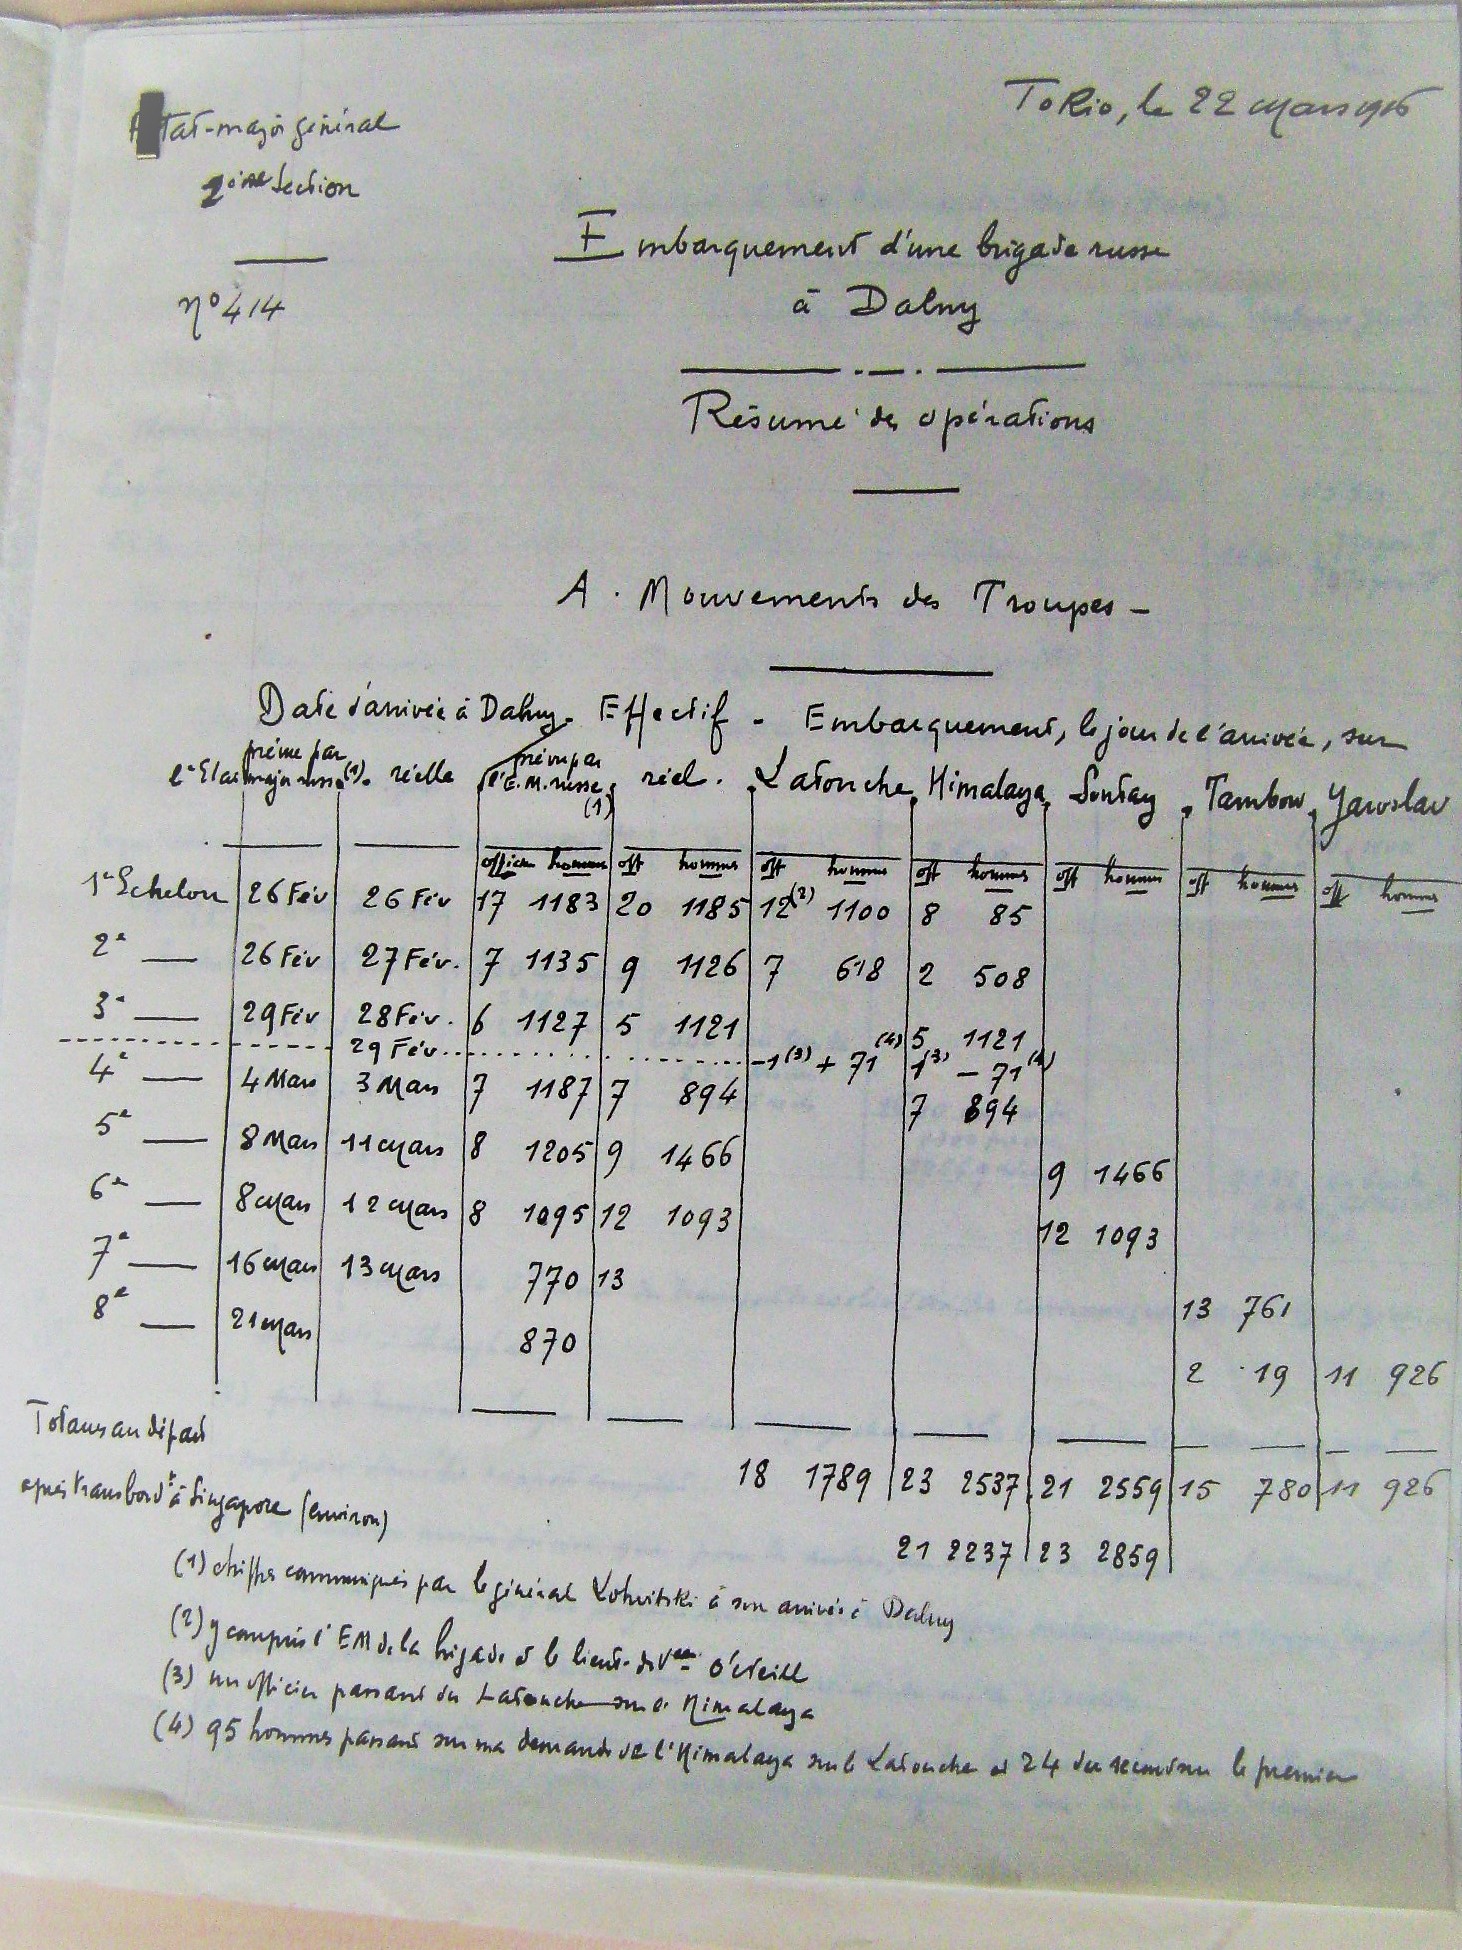 Tokio, le 22 Mars 1916
Etat-major général
2ème Section
n° 414
Embarquement d'une brigade russe
à Dalny
Résumé des opérations
A. Mouvements des Troupes -
Date d'arrivée à Dalny - Effectif - Embarquement, le jour de l'arrivée, sur
prévue par l'Etat major russe (1) - réelle prévu par l'E.M. russe (1) réel. Latouche Himalaya Sontay Tambow Yaroslav
officiers hommes off hommes off hommes off hommes off hommes off hommes off hommes
1er Echelon 26 Fév 26 Fév 17 1183 20 1185 12(2) 1100 8 85
2e — 26 Fév 27 Fév. 7 1135 9 1126 7 618 2 508
3e — 29 Fév 28 Fév. 6 1127 5 1121 5 1121
29 Fév -1(3) + 71(4) 1(3) - 71(4)
4e — 4 Mars 3 Mars 7 1187 7 894 7 894
5e — 8 Mars 11 Mars 8 1205 9 1466 9 1466
6e — 8 Mars 12 Mars 8 1095 12 1093 12 1093
7e — 16 Mars 13 Mars 770 13 13 761
8e — 21 Mars 870 2 19 11 926
Totaux au départ 18 1789 23 2537 21 2559 15 780 11 926
après transbordt à Singapore (environ) 21 2237 23 2859
(1) chiffres communiqués par le général Lohvitski à son arrivée à Dalny
(2) y compris l'EM de la brigade et le lieut. de Veau O'Neill
(3) un officier passant du Latouche sur l'Himalaya
(4) 95 hommes passant sur ma demande de l'Himalaya sur le Latouche et 24 du second sur le premier